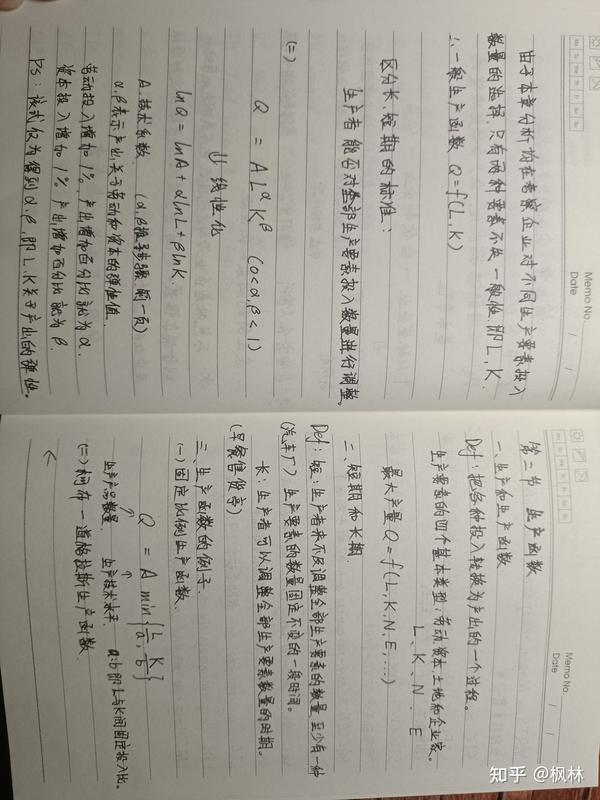 Memo No.
Date / /
第二节 生产函数
一、生产和生产函数
Def:把各种投入转换为产出的一个过程。
生产要素的四个基本类型:劳动、资本、土地和企业家。
L、K、N、E
最大产量 Q = f(L,K,N,E,...)
二、短期和长期.
Def:短:生产者来不及调整全部生产要素的数量,至少有一种
(汽车厂) 生产要素的数量固定不变的一段时间。
长:生产者可以调整全部生产要素数量的时期。
(早餐售货亭)
三、生产函数的例子.
(一)固定比例生产函数.
Q = A min{L/a, K/b}
生产产品数量. 生产技术水平. a:b即L与K间固定投入比。
(二)柯布一道格拉斯生产函数.
Memo No.
Date / /
由于本章分析均在考察企业对不同生产要素投入
数量的选择,只有两种要素不失一般性,即L,K.
∴一般生产函数 Q=f(L,K)
区分长、短期的标准:
生产者能否对全部生产要素投入数量进行调整。
(二)
Q = AL^αK^β (0<α,β<1)
⇓ 线性化
lnQ = lnA + αlnL + βlnK.
A.技术系数. (α,β推导步骤,前一页)
α,β表示产出关于劳动和资本的弹性值.
劳动投入增加1%,产出增加百分比就为α.
资本投入增加1%,产出增加百分比就为β.
PS:该式仅为得到α,β,即L、K关于产出的弹性。
知乎 @枫林